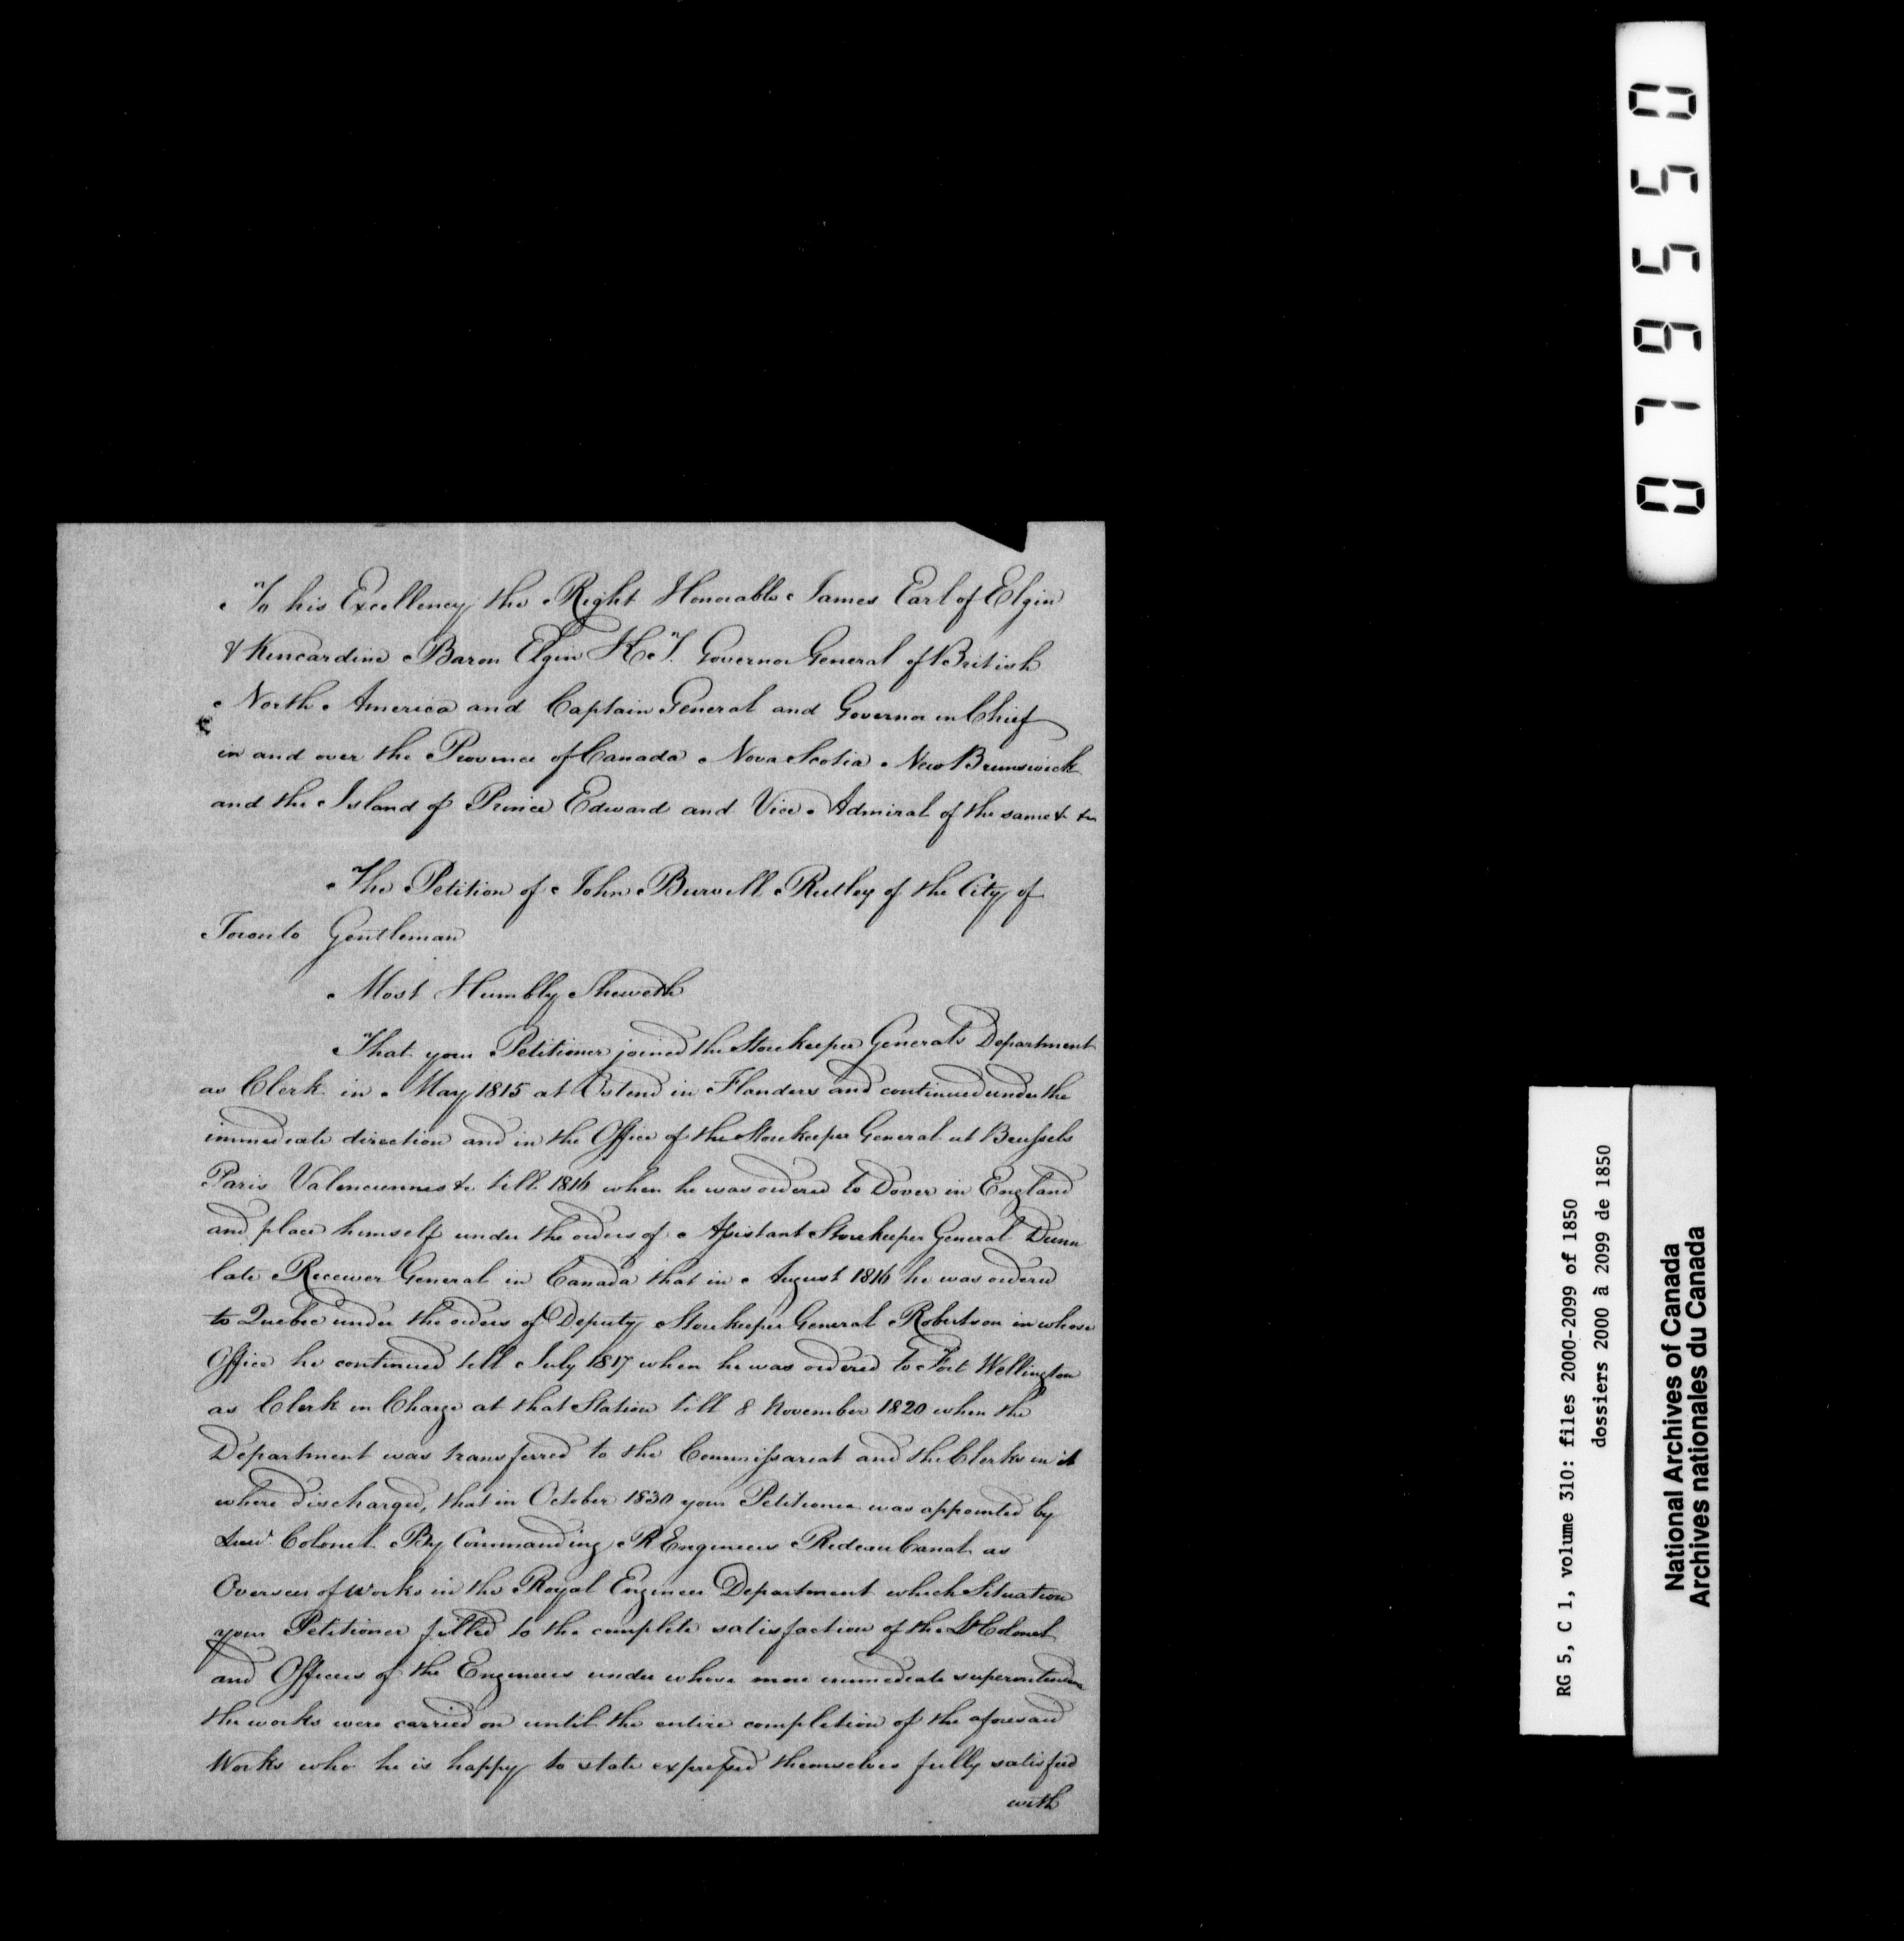 To his Excellency the Right Honorable James Earl of Elgin
& Kincardine Baron Elgin K.T. Governor General of British
North America and Captain General and Governor in Chief
in and over the Province of Canada Nova Scotia New Brunswick
and the Island of Prince Edward and Vice Admiral of the same & &c
The Petition of John Burwell Rutley of the City of
Toronto Gentleman
Most Humbly Sheweth
That your Petitioner joined the Storekeeper Generals Department
as Clerk in May 1815 at Ostend in Flanders and continued under the
immediate direction and in the Office of the Storekeeper General at Brussels
Paris Valenciennes &c till 1816 when he was ordered to Dover in England
and place himself under the orders of Assistant Storekeeper General Dunn
late Receiver General in Canada that in August 1816 he was ordered
to Quebec under the orders of Deputy Storekeeper General Robertson in whose
Office he continued till July 1817 when he was ordered to Fort Wellington
as Clerk in Charge at that Station till 8 November 1820 when the
Department was transferred to the Commissariat and the Clerks in it
where discharged, that in October 1830 your Petitioner was appointed by
Lieut Colonel By Commanding R Engineers Rideau Canal as
Overseer of Works in the Royal Engineer Department which Situation
your Petitioner filled to the complete satisfaction of the Lt Colonel
and Officers of the Engineers under whose more immediate superintendence
the works were carried on until the entire completion of the aforesaid
Works who he is happy to state expressed themselves fully satisfied
with
055670
RG 5, C 1, volume 310: files 2000-2099 of 1850
dossiers 2000 à 2099 de 1850
National Archives of Canada
Archives nationales du Canada